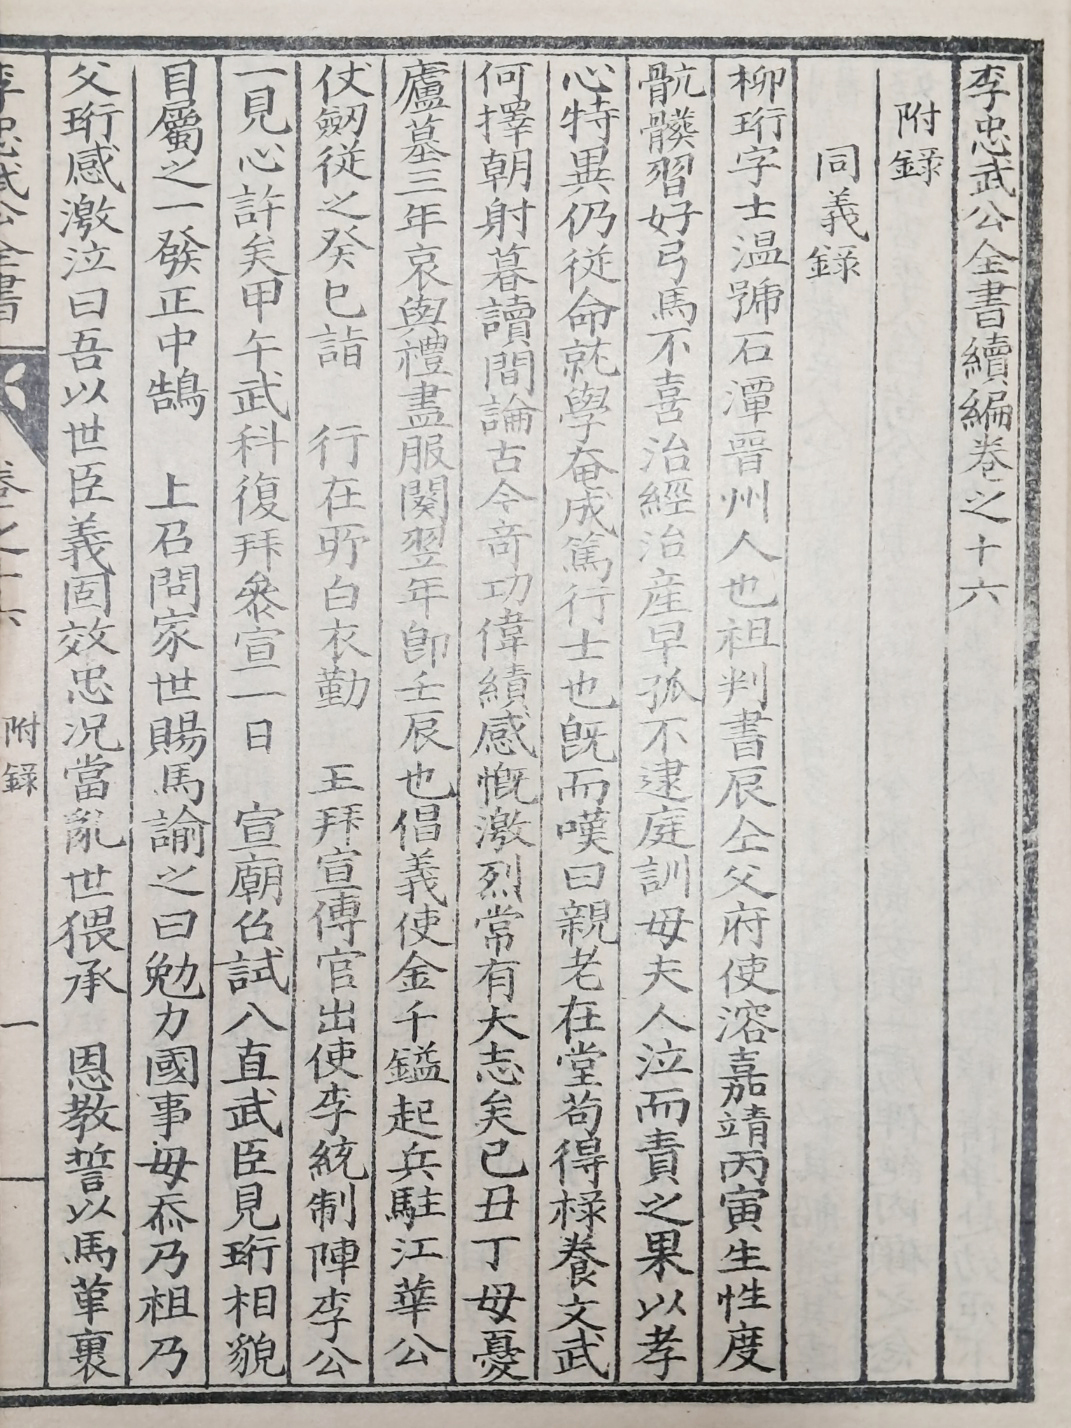 李忠武公全書續編卷之十六
附錄
同義錄
柳珩字士温號石潭晋州人也祖判書辰仝父府使溶嘉靖丙寅生性度
骯髒習好弓馬不喜治經治産早孤不逮庭訓毋夫人泣而責之果以孝
心特異仍從命就學奄成篤行士也旣而嘆曰親老在堂苟得祿養文武
何擇朝射暮讀間論古今奇功偉績感慨激烈常有大志矣己丑丁毋憂
廬墓三年哀與禮盡服闋翌年卽壬辰也倡義使金千鎰起兵駐江華公
仗劒從之癸巳詣 行在所白衣勤 王拜宣傳官出使李統制陣李公
一見心許矣甲午武科復拜叅宣一日 宣廟召試八直武臣見珩相貌
目屬之一發正中鵠 上召問家世賜馬諭之曰勉力國事毋忝乃祖乃
父珩感激泣曰吾以世臣義固效忠况當亂世猥承 恩教誓以馬革裏
李忠武公全書 卷之十六 附錄 一